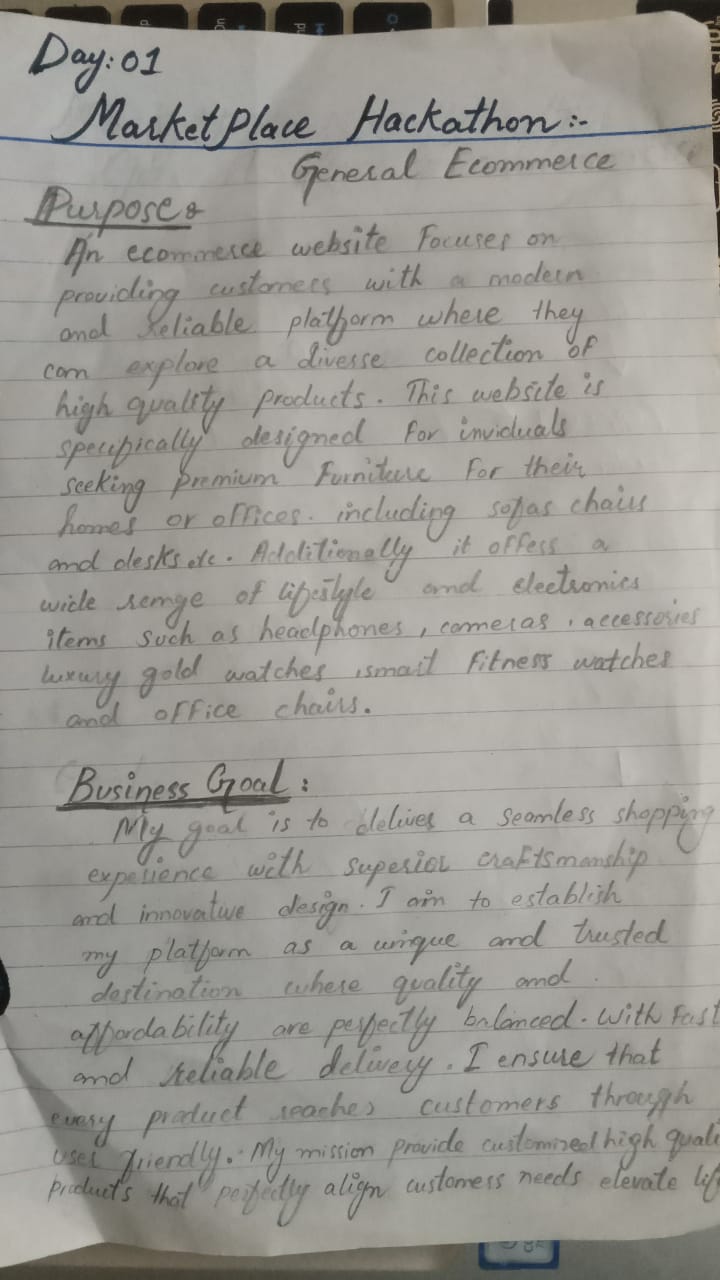 Day: 01
Market Place Hackathon :-
General Ecommerce
Purpose:
An ecommerce website Focuses on
providing customers with a modern
and reliable platform where they
can explore a diverse collection of
high quality products. This website is
specifically designed for inviduals
seeking premium Furniture For their
homes or offices. including sofas chairs
and desks etc. Additionally it offers a
wide range of lifestyle and electronics
items such as headphones, cameras, accessories
luxury gold watches, smart Fitness watches
and office chairs.
Business Goal :
My goal is to deliver a seamless shopping
experience with superior craftsmanship
and innovative design. I aim to establish
my platform as a unique and trusted
destination where quality and
affordability are perfectly balanced. With Fast
and reliable delivery. I ensure that
every product reaches customers through
user friendly. My mission provide customized high quali
products that perfectly align customers needs elevate